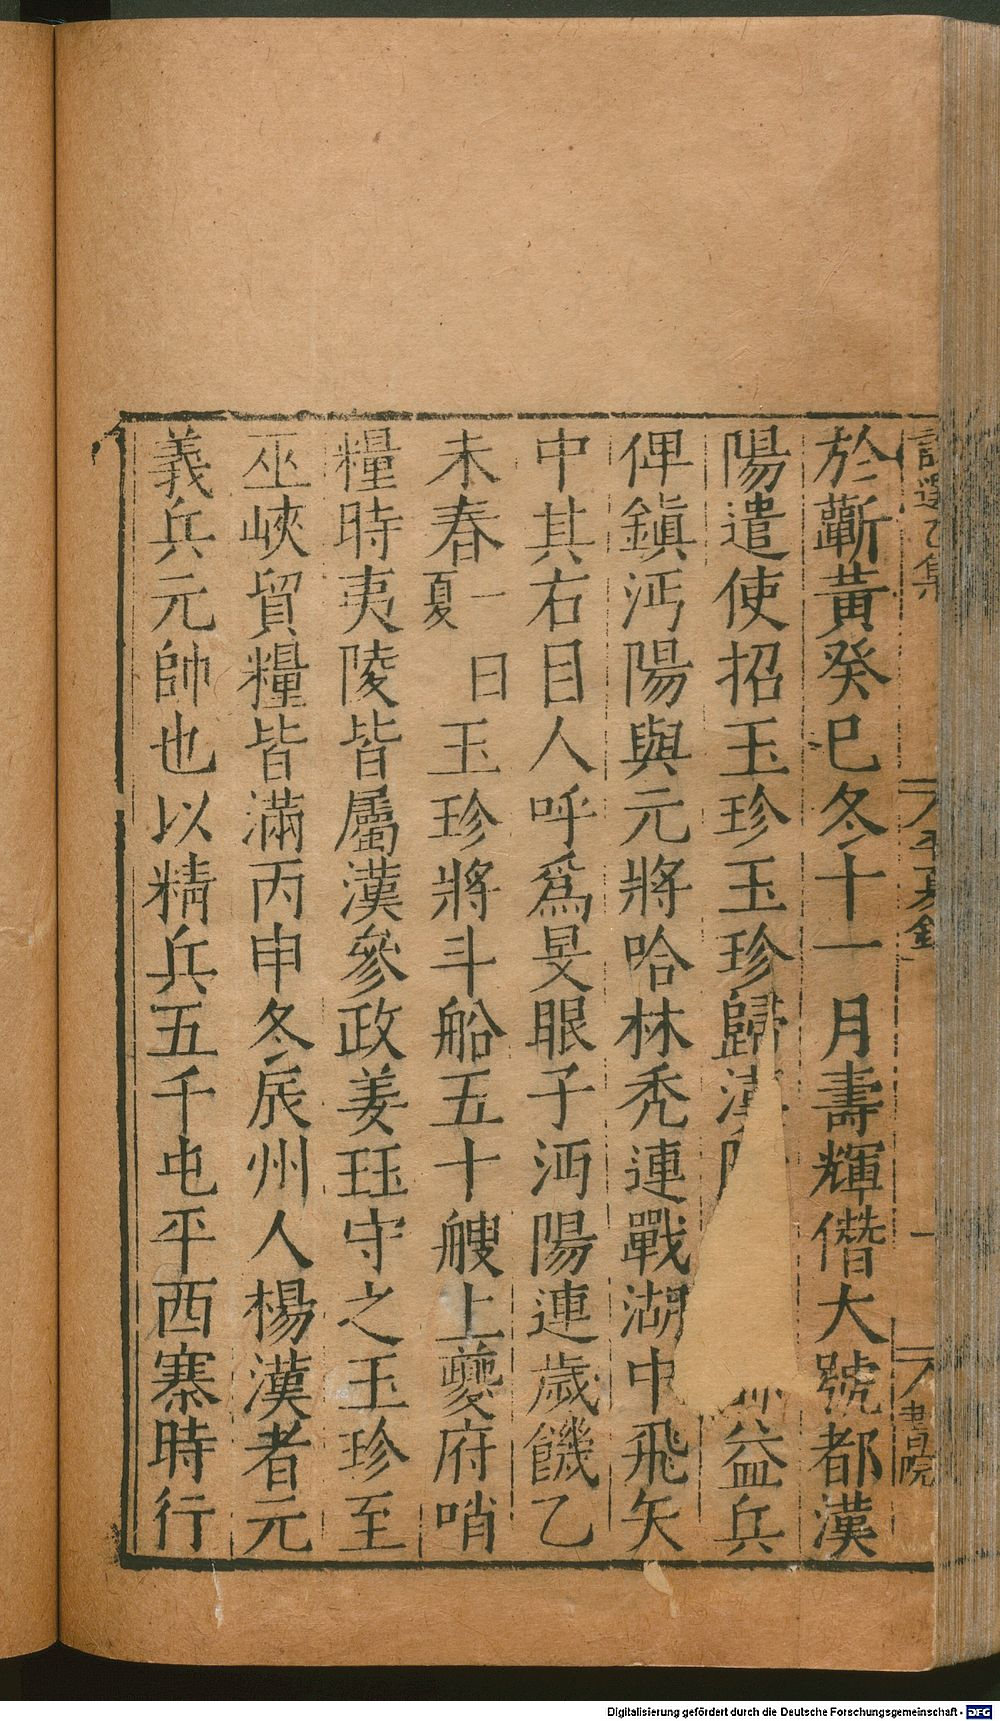 選乙集 平夏錄 一 書院
於蘄黃癸巳冬十一月壽輝僭大號都漢
陽遣使招玉珍玉珍歸漢益兵
俾鎮沔陽與元將哈林禿連戰湖中飛矢
中其右目人呼爲旻眼子沔陽連歲饑乙
未春夏一日玉珍將斗船五十艘上夔府哨
糧時夷陵皆屬漢參政姜珏守之玉珍至
巫峽貿糧皆滿丙申冬辰州人楊漢者元
義兵元帥也以精兵五千屯平西寨時行
Digitalisierung gefördert durch die Deutsche Forschungsgemeinschaft - DFG